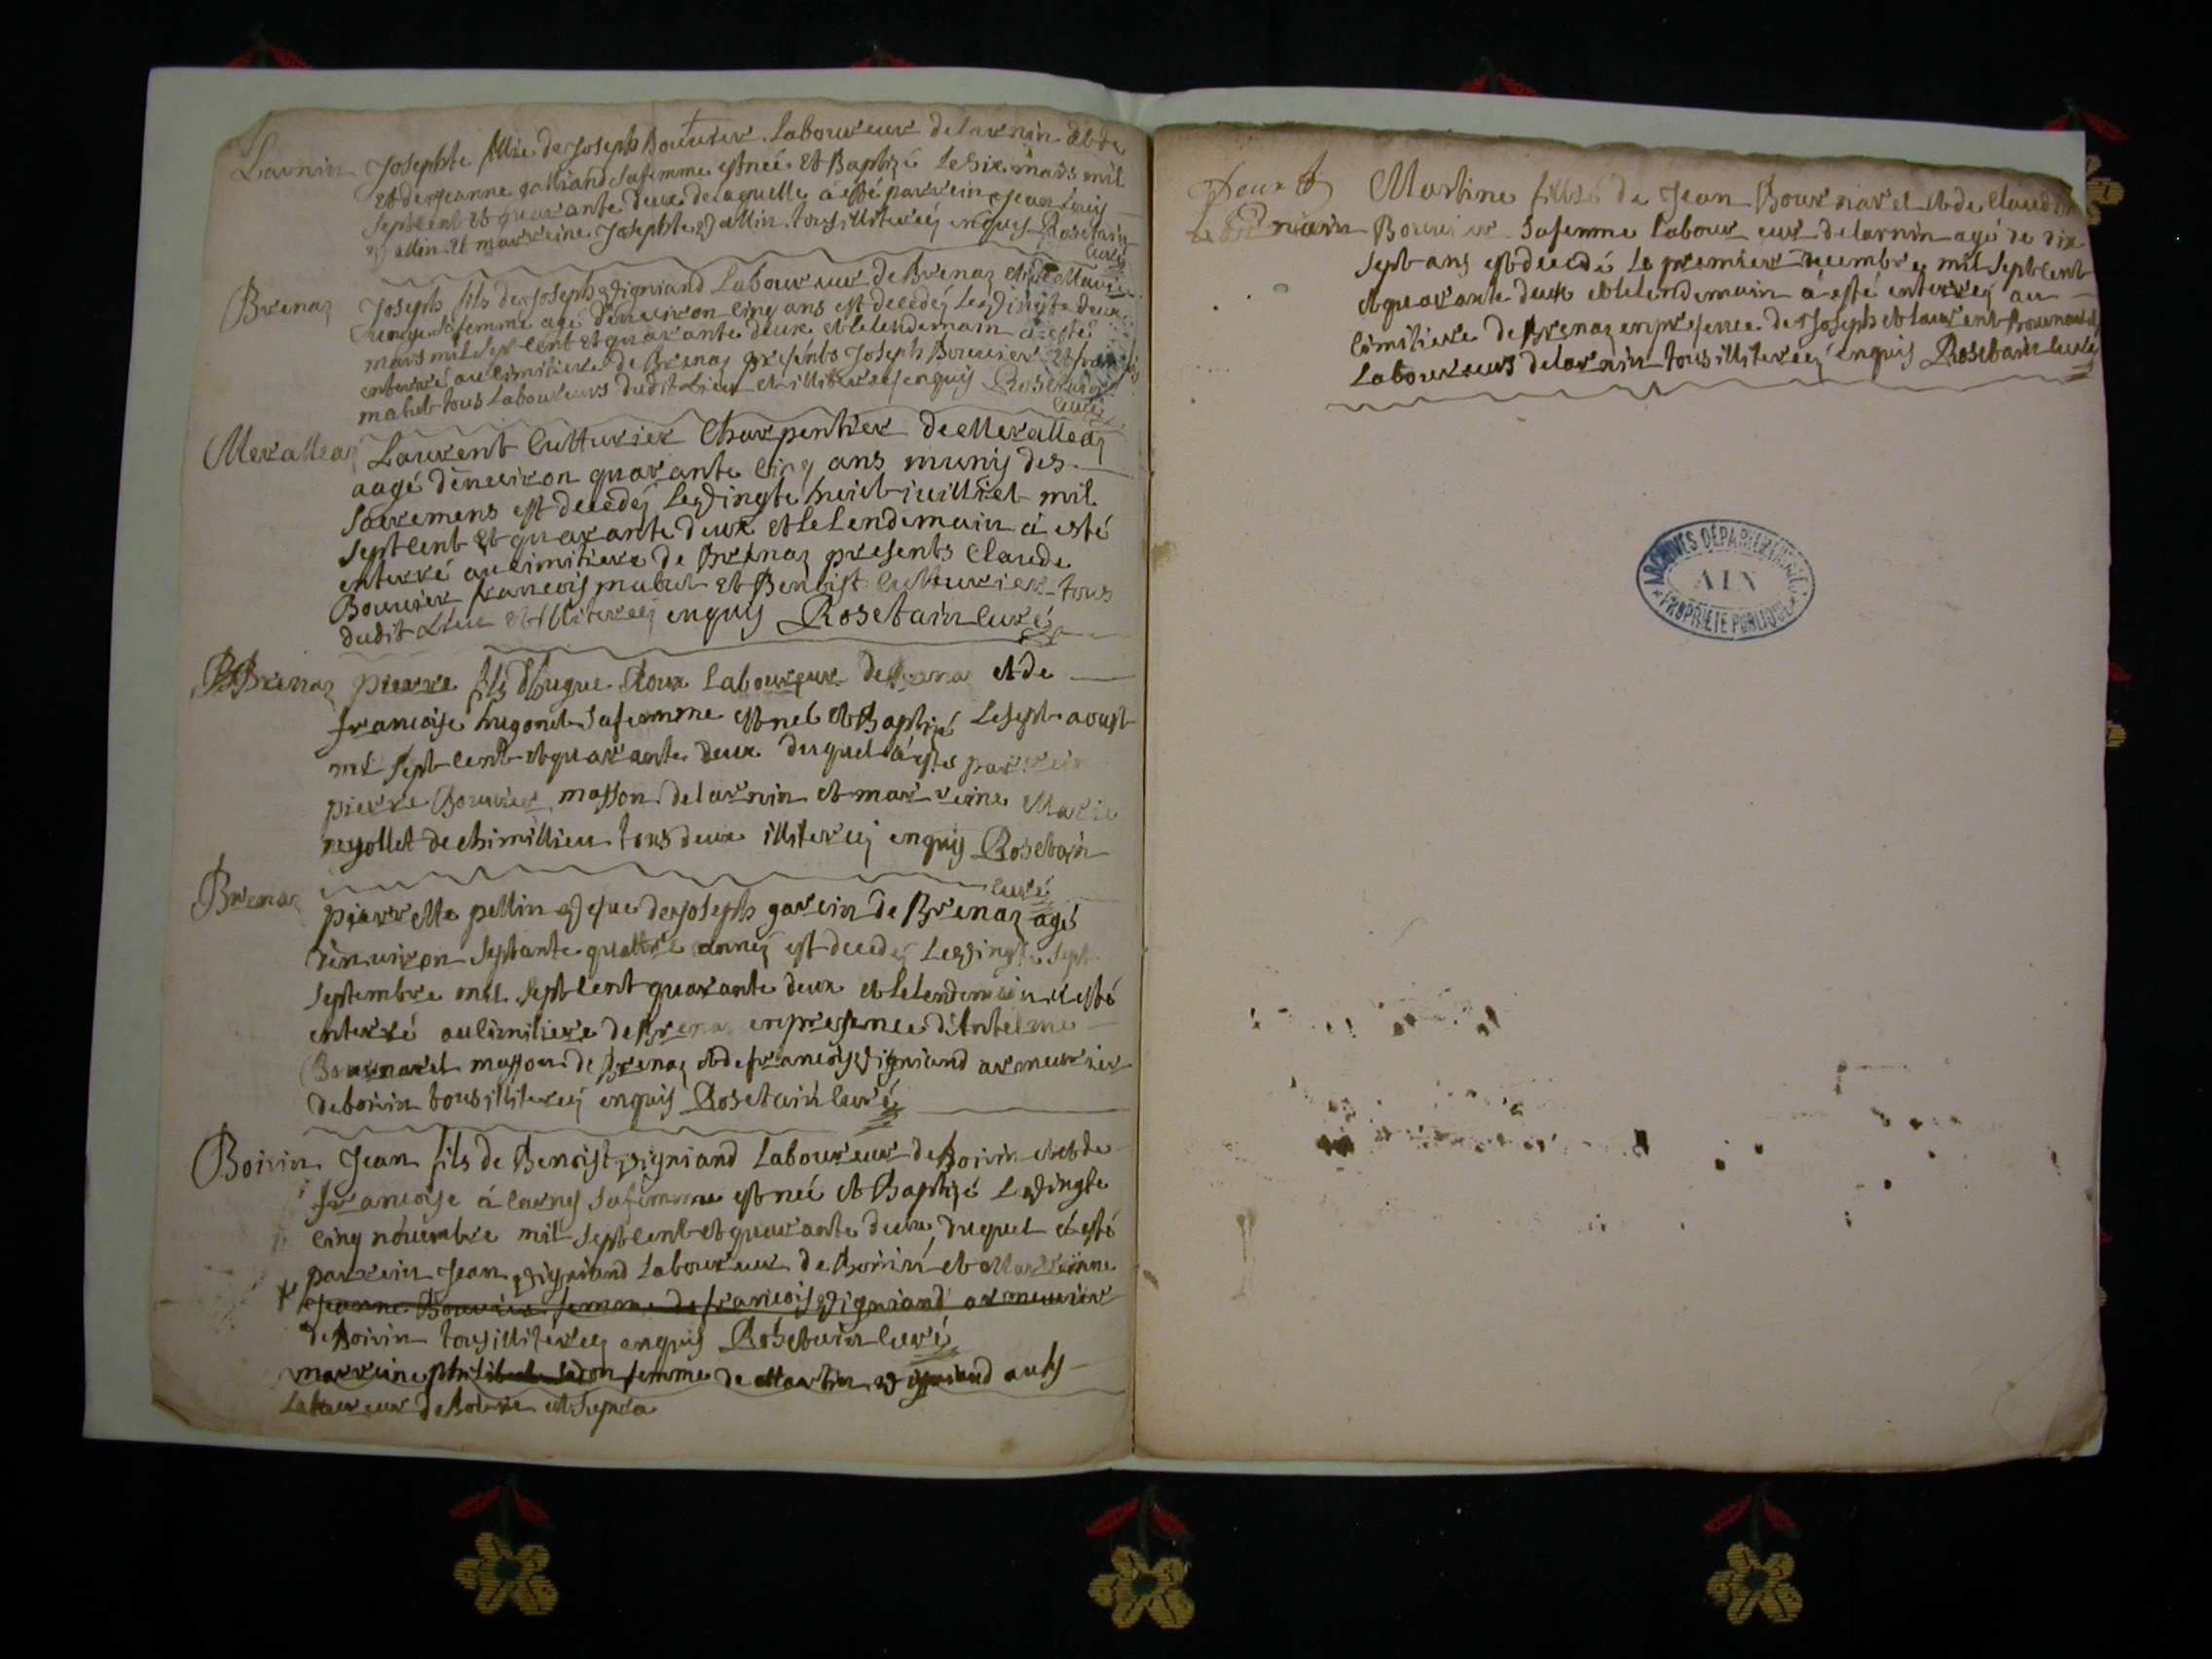 Larnin Josephte fillie de Joseph Bouvier Laboureur de larnin et de
et de jeanne galliand sa femme est née et Baptizé le six mars mil
sept cent et quarante deux de laquelle à esté parrein jean louis
vallin et marreine Josephte vallin tous illiterez enquis Rosetain
curé
Brenaz Joseph fils de joseph vigniand Laboureur de Brenaz et de Marie
sa femme agé d'enveiron cinq ans est decedéz le vingte deux
mars mil sept cent et quarante deux et le lendemain à esté
enterré au cimitiere de Brenaz presents Joseph Bouvier et françois
mabut tous Laboureurs dudit Lieu et illiterez enquis Rosetain
curé
Merallaz Laurent Cutturier Charpentier de Merallaz
aagé d'enveiron quarante cinq ans munis des
sacremens est decedéz le vingte huict juilliet mil
sept cent et quarante deux et le lendemain à esté
enterré au cimitiere de Brenaz presents Claude
Bouvier francois mabut et Benoist Cutturier tous
dudit Lieu et illiterez enquis Rosetain curé
Brenaz pierre fils d'hugue Roux Laboureur de Brenaz et de
francoise hugonet sa femme est nel et Baptizé le sept aoust
mil sept cent et quarante deux duquel à esté parrein
pierre Bouvier masson de larnin et marreine Marie
de chimillieu tous deux illiterez enquis Rosetain
curé
Brenaz pierrette pellin vefue de joseph garcin de Brenaz agé
d'enveiron septante quattre annéz est decedéz le vingte sept
septembre mil sept cent quarante deux et le lendemain à esté
enterré au cimitiere de Brenaz en presence d'Antelme
Bournaret masson de Brenaz et de francois vigniand armeurier
de boirin tous illiterez enquis Rosetain curé
Boirin Jean fils de Benoist vigniand Laboureur de Boirin et de
francoise à sa femme est neé et Baptizé le vingte
cinq novembre mil sept cent et quarante deux, duquel à esté
parrein Jean vigniand Laboureur de Boirin et Marreinne
jeanne Bouvier femme de francois vigniand armeurier
de Boirin tous illiterez enquis Rosetain curé
marreine femme de Martin vigniand
Laboureur de Boirin
Martine fillie de Jean Bournaret et de Claudine
Bouvier sa femme Laboureur de larnin agé de dix
sept ans est decedé le premier decembre mil sept cent
et quarante deux et le lendemain à esté enterrez au
cimitiere de Brenaz en presence de joseph et laurent Bournaret
Laboureurs de larnin tous illiterez enquis Rosetain curé
ARCHIVES DÉPARTEMENTALES
AIN
PROPRIÉTÉ PUBLIQUE